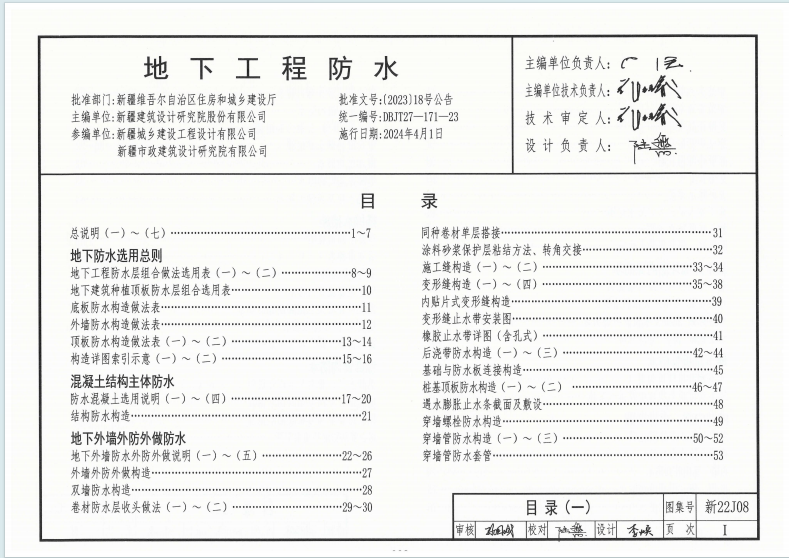 地下工程防水
批准部门:新疆维吾尔自治区住房和城乡建设厅 批准文号:(2023)18号公告
主编单位:新疆建筑设计研究院股份有限公司 统一编号:DBJT27—171—23
参编单位:新疆城乡建设工程设计有限公司 施行日期:2024年4月1日
新疆市政建筑设计研究院有限公司
主编单位负责人:
主编单位技术负责人:
技术审定人:
设计负责人:
目 录
总说明（一）～（七）…1~7
地下防水选用总则
地下工程防水层组合做法选用表（一）～（二）…8~9
地下建筑种植顶板防水层组合选用表…10
底板防水构造做法表…11
外墙防水构造做法表…12
顶板防水构造做法表（一）～（二）…13~14
构造详图索引示意（一）～（二）…15~16
混凝土结构主体防水
防水混凝土选用说明（一）～（四）…17~20
结构防水构造…21
地下外墙外防外做防水
地下外墙防水外防外做说明（一）～（五）…22~26
外墙外防外做构造…27
双墙防水构造…28
卷材防水层收头做法（一）～（二）…29~30
同种卷材单层搭接…31
涂料砂浆保护层粘结方法、转角交接…32
施工缝构造（一）～（二）…33~34
变形缝构造（一）～（四）…35~38
内贴片式变形缝构造…39
变形缝止水带安装图…40
橡胶止水带详图（含孔式）…41
后浇带防水构造（一）～（三）…42~44
基础与防水板连接构造…45
桩基顶板防水构造（一）～（二）…46~47
遇水膨胀止水条截面及敷设…48
穿墙螺栓防水构造…49
穿墙管防水构造（一）～（三）…50~52
穿墙管防水套管…53
目录(一) 图集号 新22J08
审核 校对 设计 页次 I